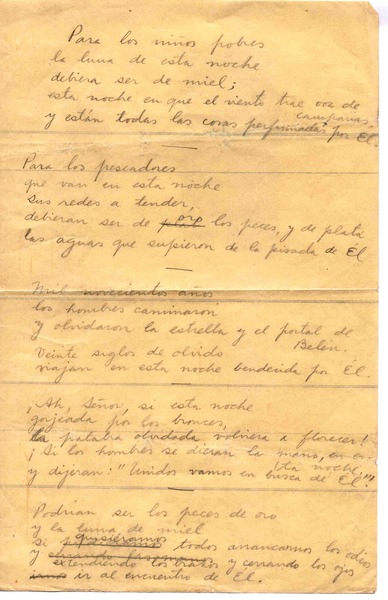 Para los niños pobres
la luna de esta noche
debiera ser de miel;
esta noche en que el viento trae voz de
campanas
y están todas las cosas perfumadas por Él.
Para los pescadores
que van en esta noche
sus redes a tender,
debieran ser de oro los peces, y de plata
las aguas que supieron de la pisada de Él
Mil novecientos años
los hombres caminaron
y olvidaron la estrella y el portal de
Belén.
Veinte siglos de olvido
viajan en esta noche bendecida por Él.
¡Ah, Señor, si esta noche
gorjeada por los bronces,
la palabra olvidada volviera a florecer!
¡Si los hombres se dieran la mano, en es-
ta noche,
y dijeran: "Unidos vamos en busca de Él"!
Podrían ser los peces de oro
y la luna de miel
si quisiéramos todos arrancarnos los odios
y extendiendo los brazos y cerrando los ojos
ir al encuentro de Él.